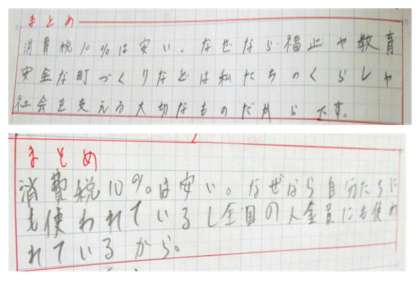 まとめ
消費税10%は安い。なぜなら福祉や教育
安全な町づくりなどは私たちのくらしや
社会を支える大切なものだからです。
まとめ
消費税10%は安い。なぜなら自分たちに
も使われているし全国の人全員にも使わ
れているから。